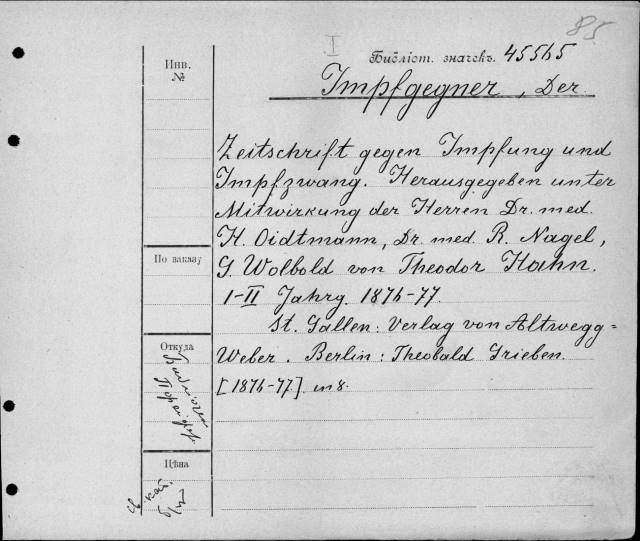 85
I
Библіот. значекъ. 45565
Инв.
№
Impfgegner, Der.
Zeitschrift gegen Impfung und
Impfzwang. Herausgegeben unter
Mitwirkung der Herren Dr. med.
H. Oidtmann, Dr. med. R. Nagel,
По заказу
G. Wolbold von Theodor Hahn.
I-II Jahrg. 1876-77.
St. Gallen: Verlag von Altwegg-
Откуда
Weber. Berlin: Theobald Grieben.
[1876-77]. in 8.
Цѣна